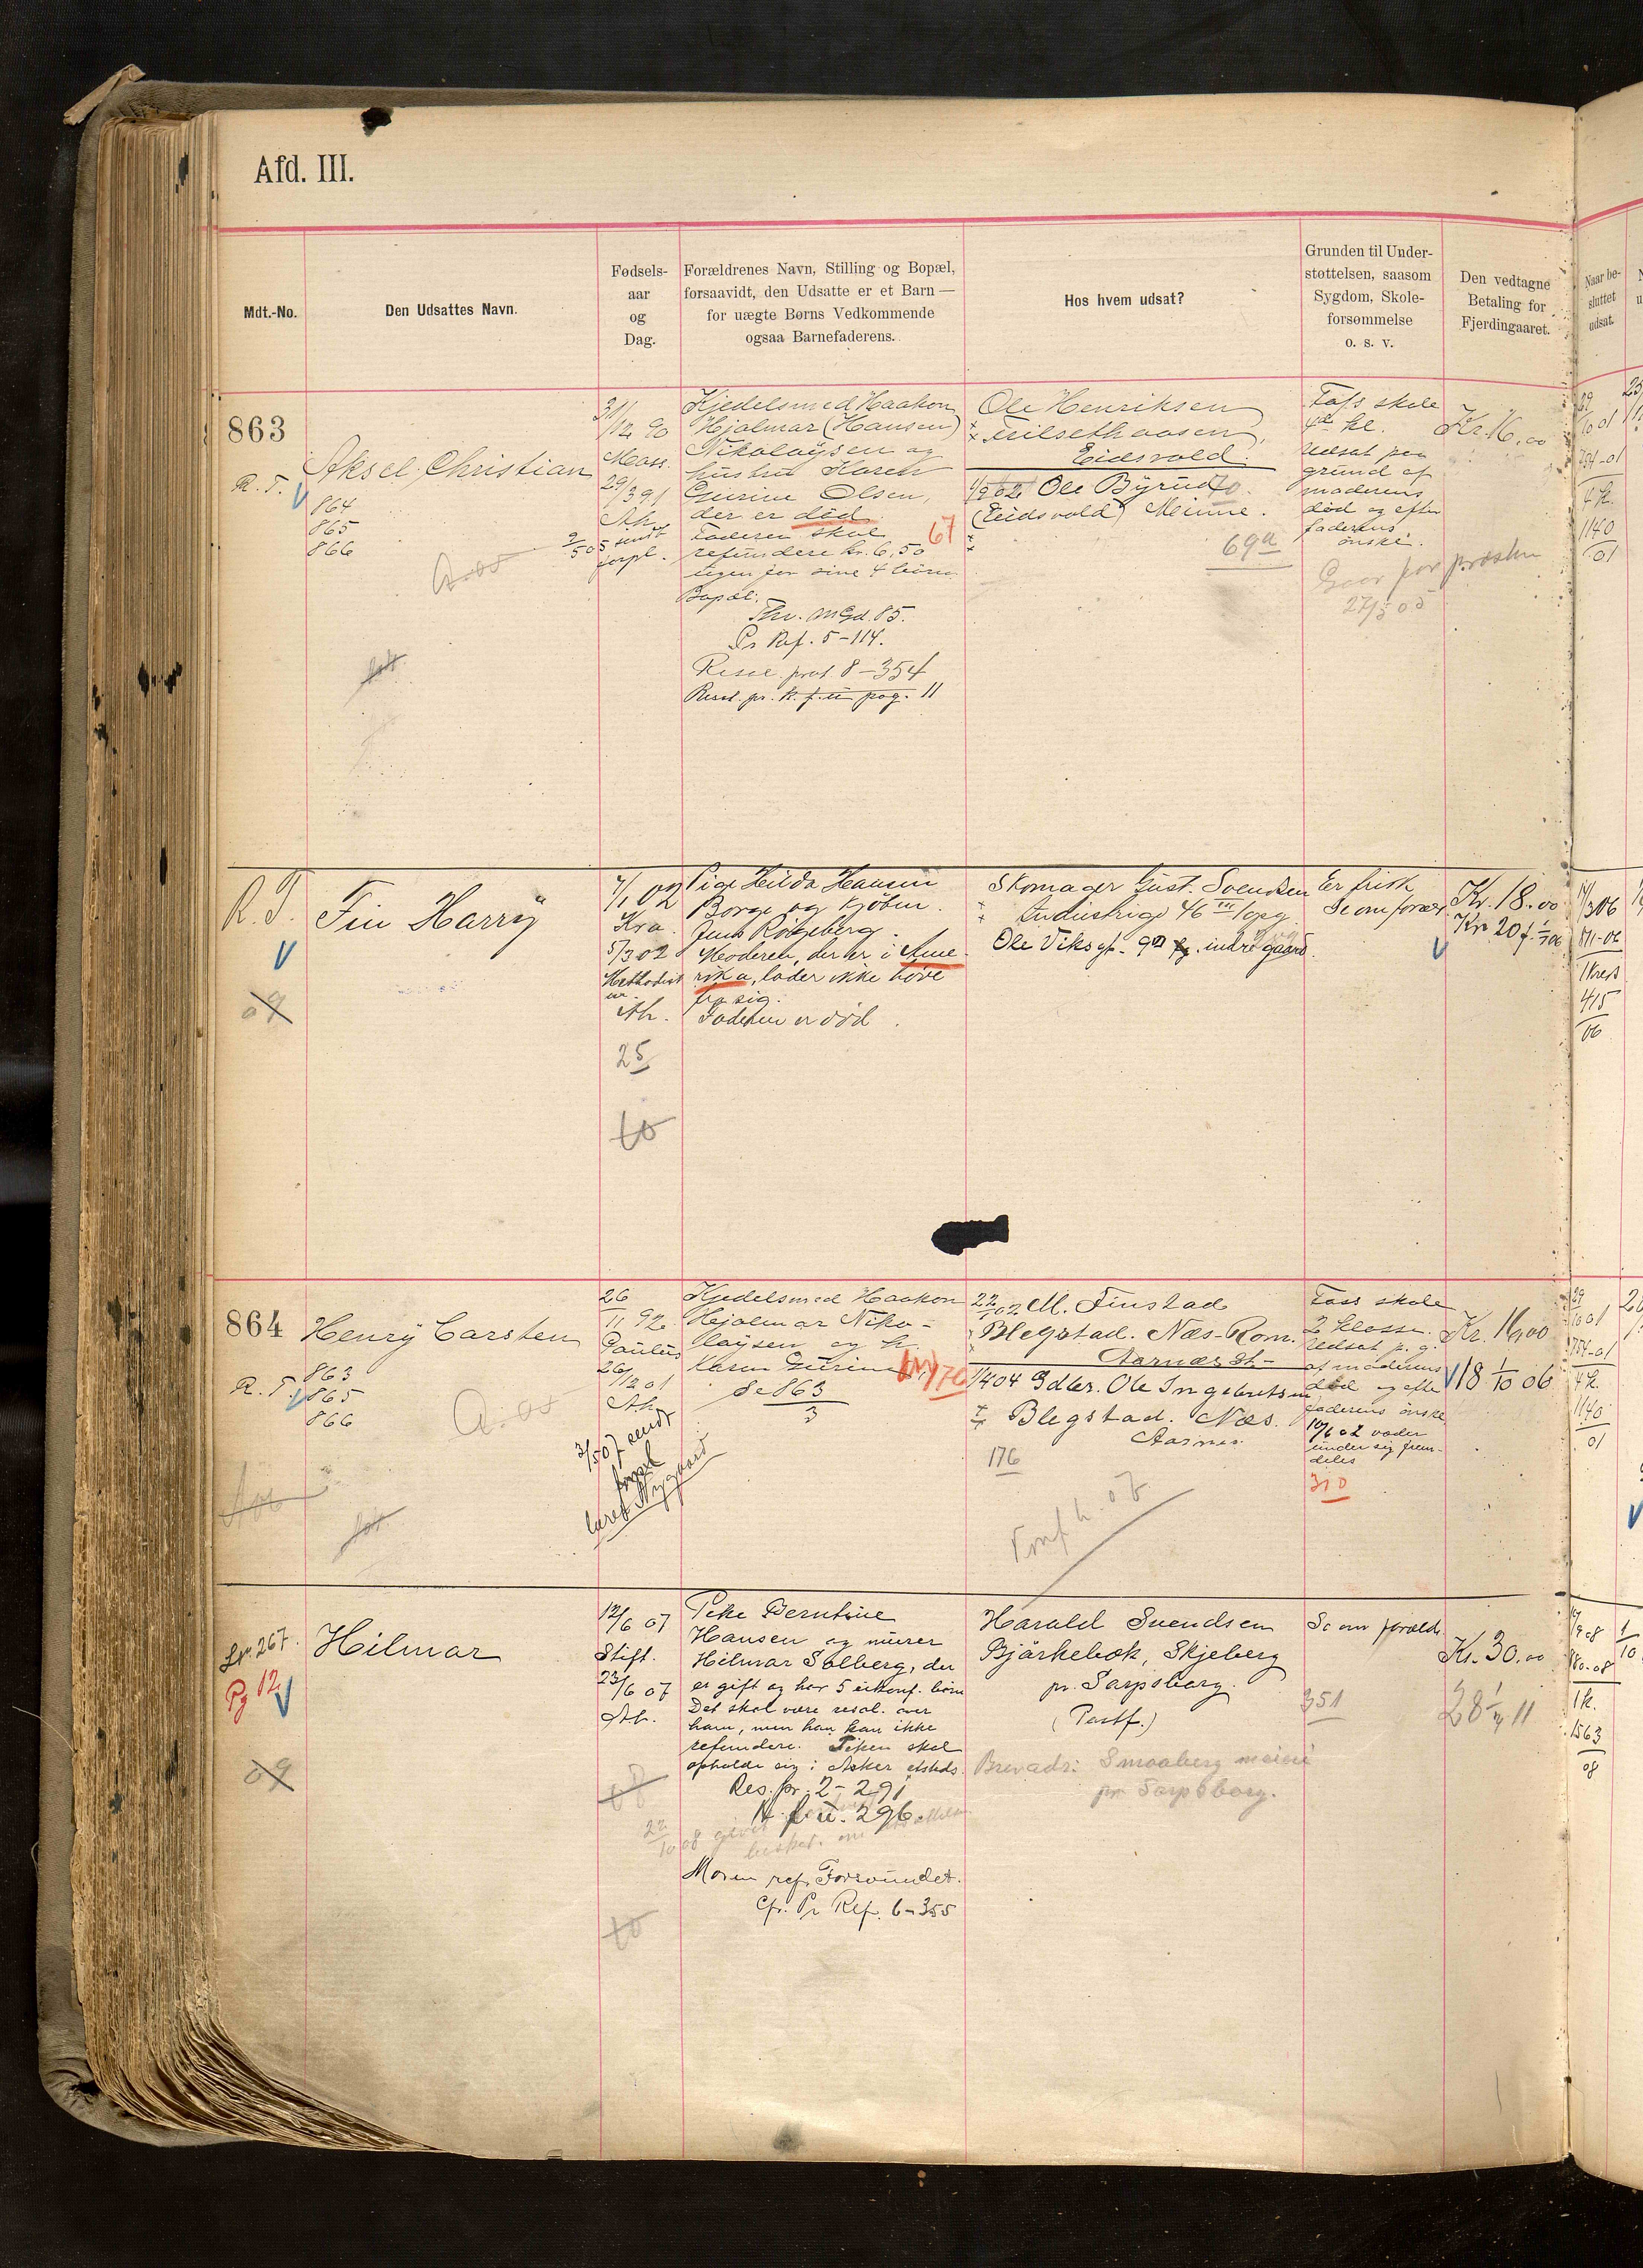 Afd. III.
Mdt.-No.
Den Udsattes Navn.
Fødsels-
aar
og
Dag.
Forældrenes Navn, Stilling og Bopæl,
forsaavidt, den Udsatte er et Barn —
for uægte Børns Vedkommende
ogsaa Barnefaderens.
Hos hvem udsat?
Grunden til Under-
støttelsen, saasom
Sygdom, Skole-
forsømmelse
o. s. v.
Den vedtagne
Betaling for
Fjerdingaaret.
Naar be-
sluttet
udsat.
863
R. T.
Aksel Christian
864
865
866
31/
/12 90
29/
/3 91
Ah.
Kjedelsmed Haakon
Hjalmar (Hansen)
Nikolaysen og
hustru Karen
Gurine Olsen,
der er død.
Faderen skal
refundere kr. 6,50
ugen for sine 4 börn
Bopæl:
Thv. Mgd. 85.
Pr Ref. 5-114.
Resol. prot 8-354
Resol. pr. H. f. u pag. 11
67
Ole Henriksen
Eidsvold.
1/5 02 Ole Byrud 70.
(Eidsvold) Minne.
69a
Fass skole
4de kl.
Udsat paa
grund af
moderens
død og efter
faderens
ønske.
Gaar for præsten
27/5 05
Kr. 16,00
1140
01
R. T.
09
Fin Harry
7/1 02
Kra.
5/3 02
Methodist
Ah.
25
Pige Hilda Hansen
Borge og kjöbm.
Jens Röigeberg.
Moderen, der er i Ame-
rika, lader ikke höre
fra sig.
Faderen er död.
Skomager Gust. Svendsen
Industrigt 46 III opg
Ole Viks gt. 9 II indre gaard.
Er frisk
Se om foræl.
Kr. 18.00
Kr 20 f. 1/7 06
415
06
864
R. T.
Henry Carsten
863
865
866
26
11 92
Paulus
26/
/2 01
Ah.
3/5 07 sendt
Kjedelsmed Haakon
Hjalmar Niko-
laysen og h.
Karen Gurine
Se 863
3
70
22/
/1 02 M. Finstad
Blegstad. Næs. Rom.
Aarnæs st-
1/4 04 Gdbr. Ole Ingebretsen
Blegstad. Næs.
Aarnes
176
Konf. h. 07
Fass skole
2 klasse.
Udsat p. g.
af moderens
død og efter
faderens ønske
10/6 02 vader
under sig frem-
deles
310
Kr. 16,00
18 1/10 06
1140
01
Lp. 267.
Pg 12
09
Hilmar
12/6 07
Stift.
23/6 07
Ah.
Pike Berntine
Hansen og murer
Hilmar Solberg, der
er gift og har 5 ukonf. börn
Det skal være resol. over
ham, men han kan ikke
refundere. Piken skal
opholde sig i Asker etsteds.
Res. pr. 2-291
H. f. u. 296
Moren ref. Forsvundet.
Cfr. Pr Ref. 6-355
Harald Svendsen
Björkebæk, Skjeberg
pr. Sarpsborg.
(Postf.)
Brevadr: Smaaberg meieri
pr. Sarpsborg.
Se om foræld.
351
Kr. 30.00
28 1/4 11
1563
08